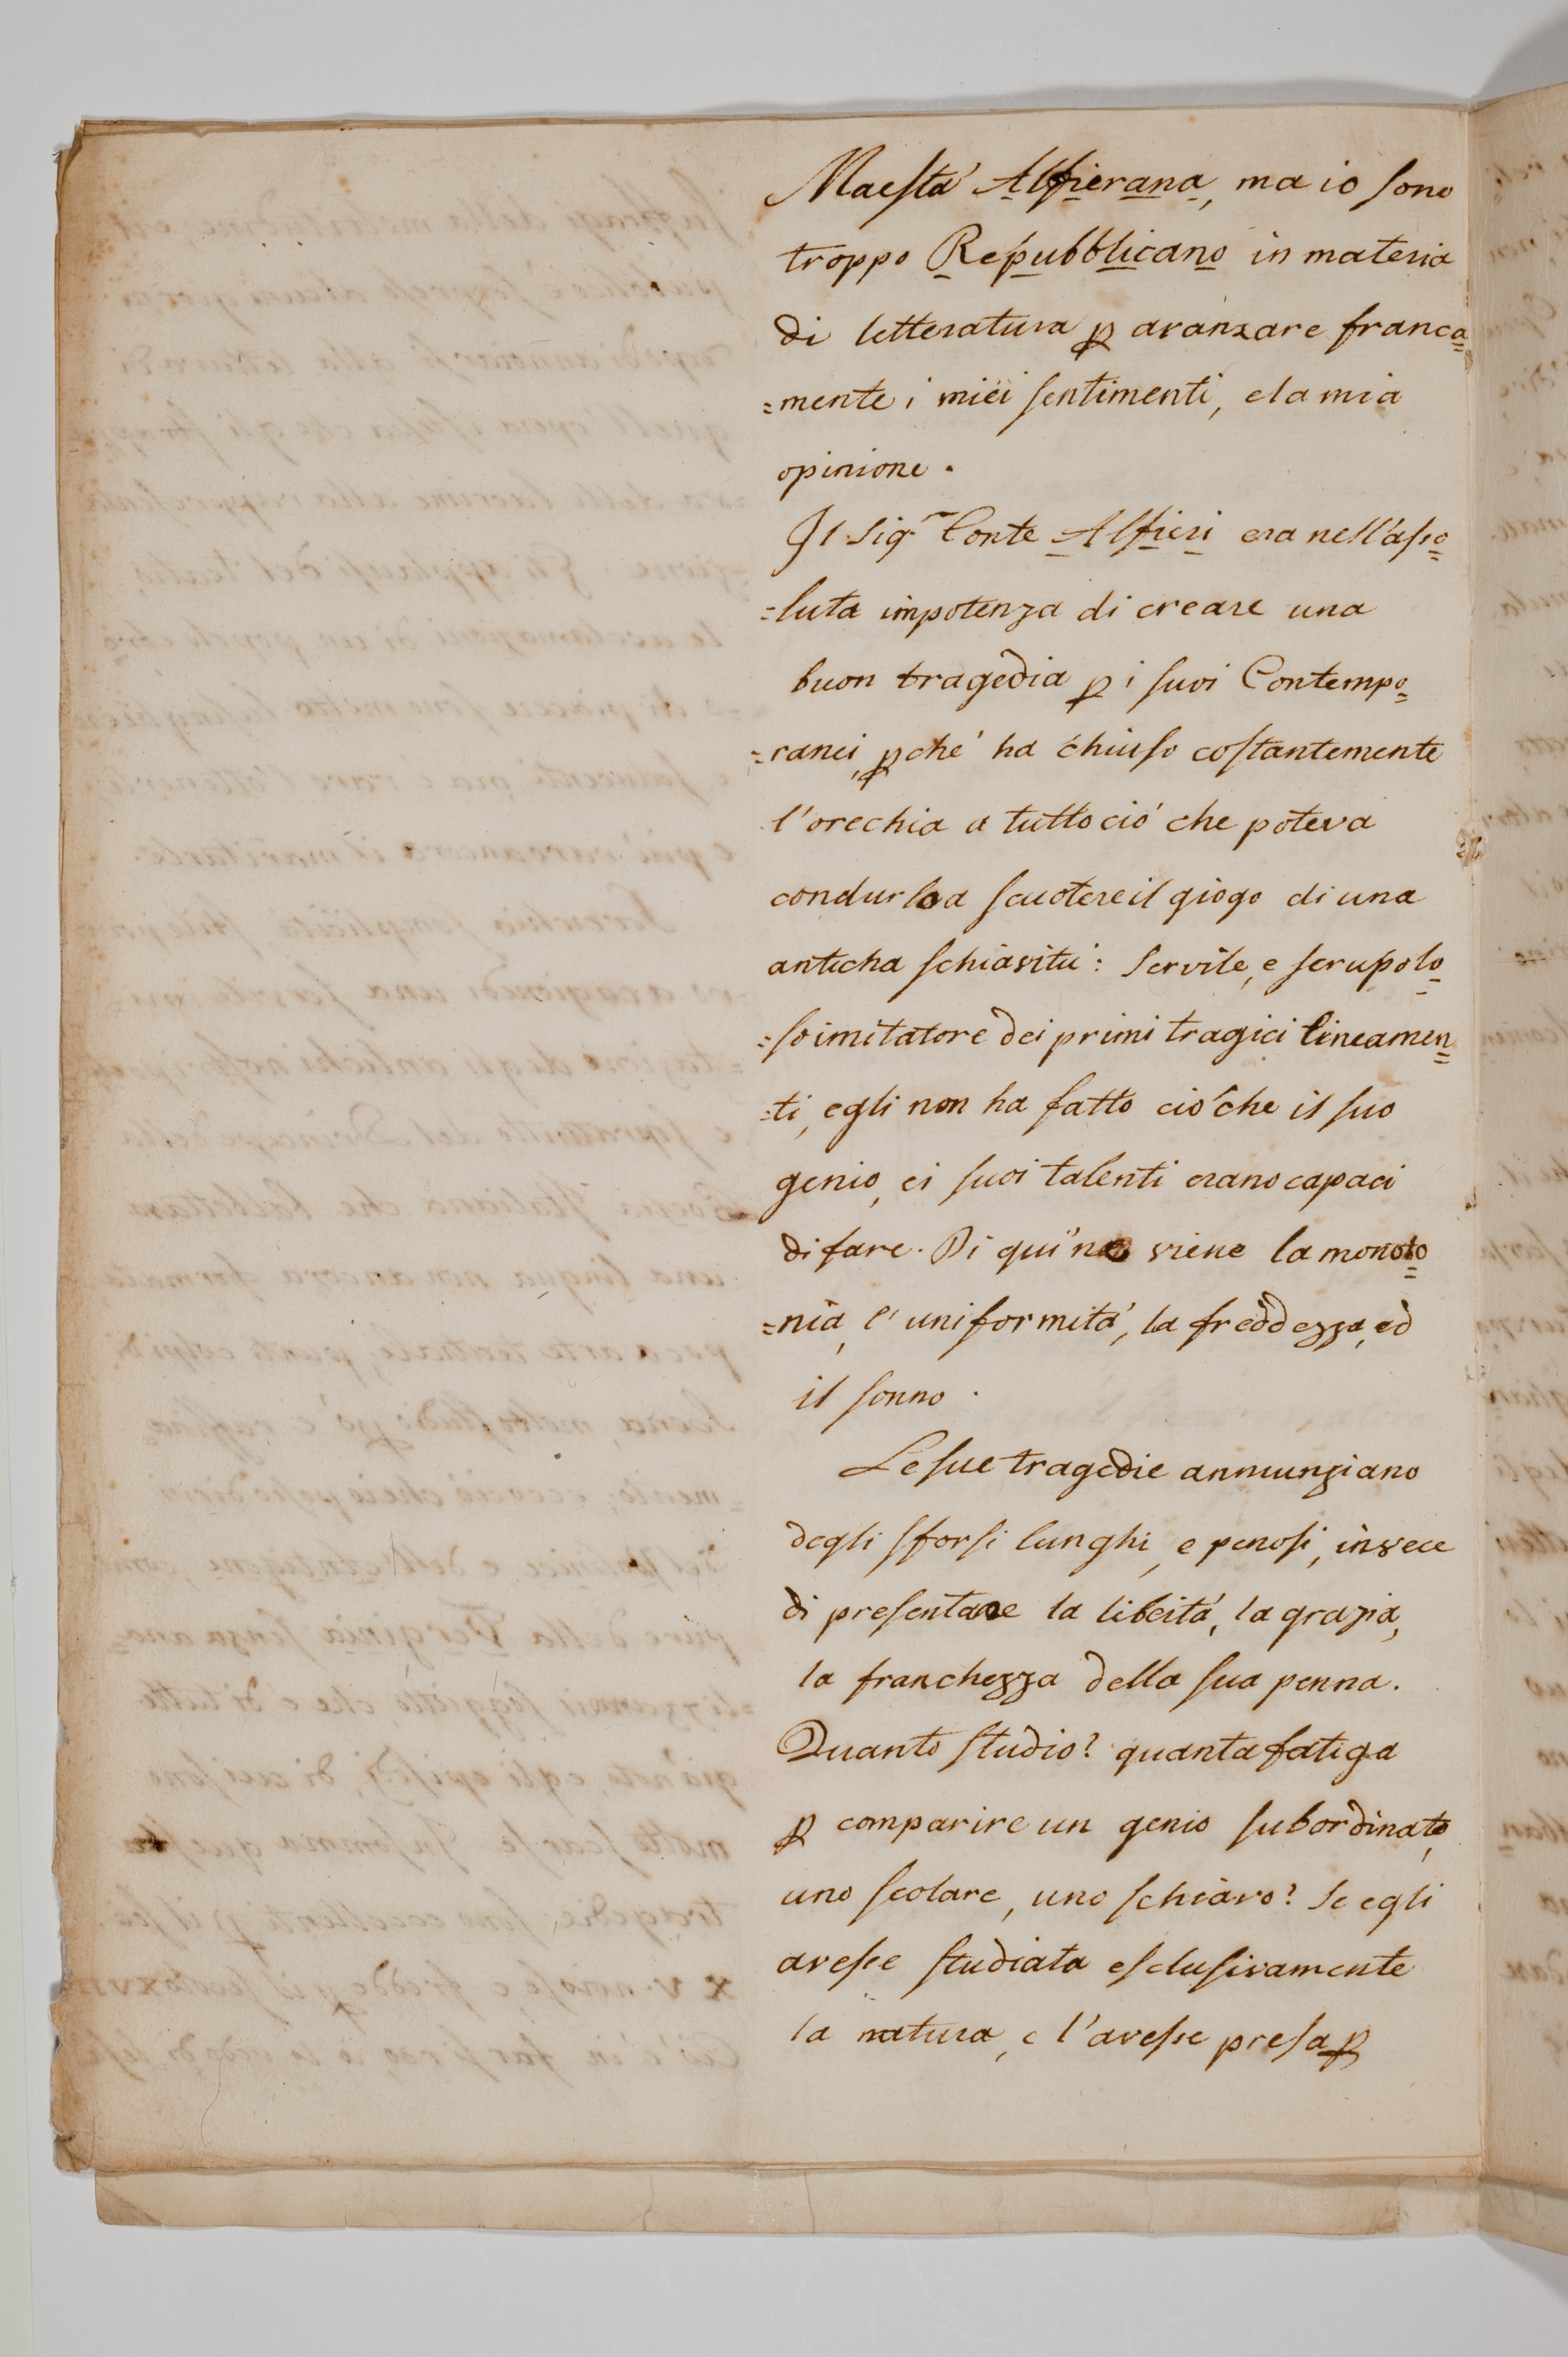 Maestá Alfierana, ma io sono
troppo Repubblicano in materia
di letteratura ꝑ avanzare franca=
=mente i miei sentimenti, e la mia
opinione.
Il Sig.r Conte Alfieri era nell'asso=
=luta impotenza di creare una
buon tragedia ꝑ i suoi Contempo=
=ranei, ꝑché ha chiuso costantemente
l'orechia a tutto ció che poteva
condurlo a scuotere il giogo di una
anticha schiavitú: Servile, e scrupolo=
=so imitatore dei primi tragici lineamen=
=ti, egli non ha fatto ció che il suo
genio, ei suoi talenti erano capaci
di fare. Di qui ne viene la monoto=
=nia, l'uniformitá, la freddezza, ed
il sonno.
Le sue tragedie annunziano
degli sforsi lunghi, e penosi, invece
di presentare la libertá, la grazia,
la franchezza della sua penna.
Quanto studio? quanta fatiga
ꝑ comparire un genio subordinato,
uno scolare, uno schiavo? Se egli
avesse studiata esclusivamente
la natura, e l'avesse presa ꝑ